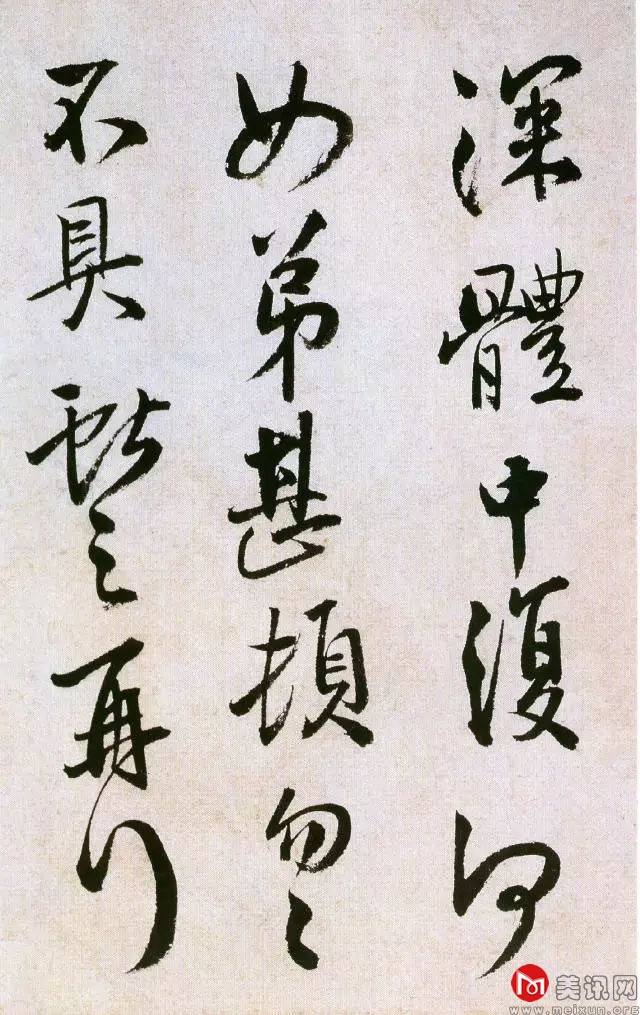 深體中復何
如弟甚頓勿々
不具獻之再拜
美讯网
www.meixun.org